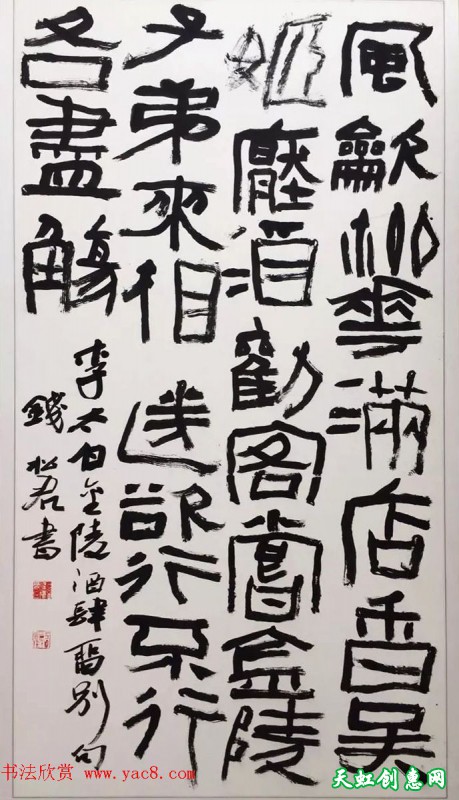 風龡柳華滿店香吳
姬壓酒勸客嘗金陵
子弟來相送欲行不行
各盡觴
李太白金陵酒肆留別句
錢松君書
书法欣赏 www.yac8.com
天虹创惠网